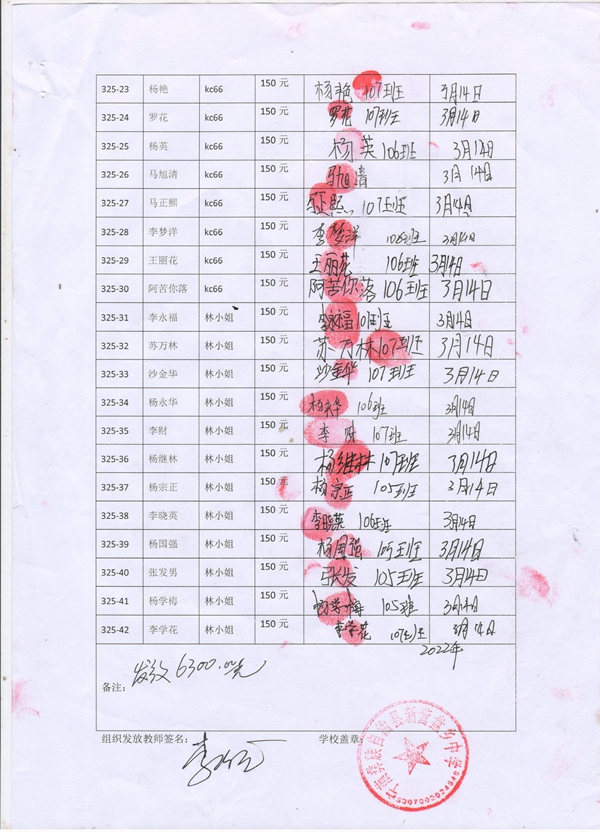 325-23 杨艳 kc66 150 元 杨艳 107班 3月14日
325-24 罗花 kc66 150 元 罗花 107班 3月14日
325-25 杨英 kc66 150 元 杨英 106班 3月14日
325-26 马旭清 kc66 150 元 马旭清 3月14日
325-27 马正熙 kc66 150 元 107班 3月14日
325-28 李梦洋 kc66 150 元 李梦洋 106班 3月14日
325-29 王丽花 kc66 150 元 王丽花 106班 3月14日
325-30 阿苦你落 kc66 150 元 阿苦你落 106班 3月14日
325-31 李永福 林小姐 150 元 李永福 107班 3月14日
325-32 苏万林 林小姐 150 元 苏万林 107班 3月14日
325-33 沙金华 林小姐 150 元 沙金华 107班 3月14日
325-34 杨永华 林小姐 150 元 杨永华 106班 3月14日
325-35 李财 林小姐 150 元 李财 107班 3月14日
325-36 杨继林 林小姐 150 元 杨继林 107班 3月14日
325-37 杨宗正 林小姐 150 元 杨宗正 105班 3月14日
325-38 李晓英 林小姐 150 元 李晓英 106班 3月14日
325-39 杨国强 林小姐 150 元 杨国强 105班 3月14日
325-40 张发男 林小姐 150 元 张发 105班 3月14日
325-41 杨学梅 林小姐 150 元 杨学梅 105班 3月14日
325-42 李学花 林小姐 150 元 李学花 107班 3月14日
2022年
备注: 发放6300.00元
组织发放教师签名: 学校盖章: